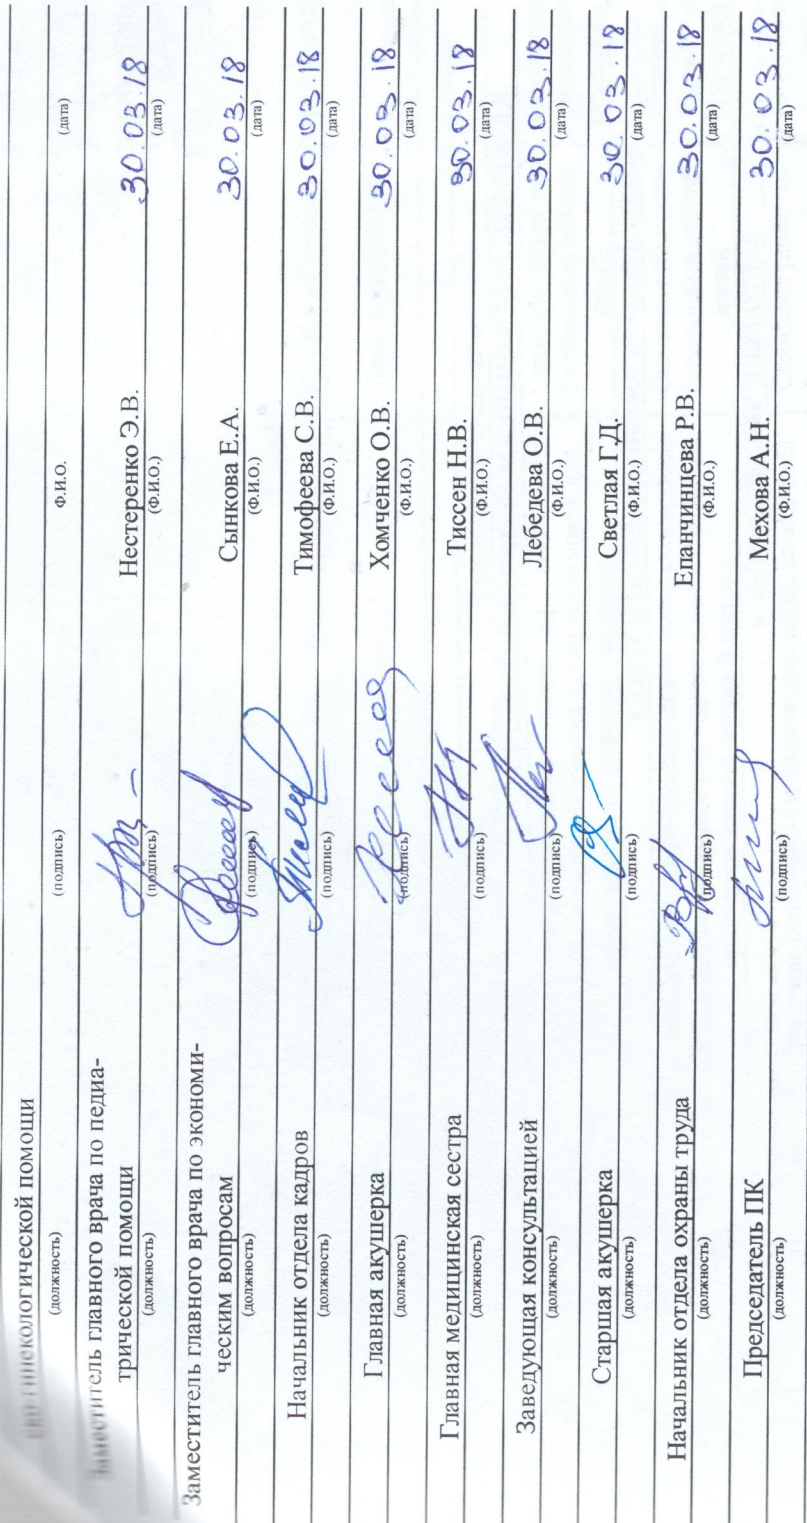 гинекологической помощи
(должность) (подпись) Ф.И.О. (дата)
Заместитель главного врача по педиа-
трической помощи Нестеренко Э.В. 30.03.18
(должность) (подпись) (Ф.И.О.) (дата)
Заместитель главного врача по экономи-
ческим вопросам Сынкова Е.А. 30.03.18
(должность) (подпись) (Ф.И.О.) (дата)
Начальник отдела кадров Тимофеева С.В. 30.03.18
(должность) (подпись) (Ф.И.О.) (дата)
Главная акушерка Хомченко О.В. 30.03.18
(должность) (подпись) (Ф.И.О.) (дата)
Главная медицинская сестра Тиссен Н.В. 30.03.18
(должность) (подпись) (Ф.И.О.) (дата)
Заведующая консультацией Лебедева О.В. 30.03.18
(должность) (подпись) (Ф.И.О.) (дата)
Старшая акушерка Светлая Г.Д. 30.03.18
(должность) (подпись) (Ф.И.О.) (дата)
Начальник отдела охраны труда Епанчинцева Р.В. 30.03.18
(должность) (подпись) (Ф.И.О.) (дата)
Председатель ПК Мехова А.Н. 30.03.18
(должность) (подпись) (Ф.И.О.) (дата)